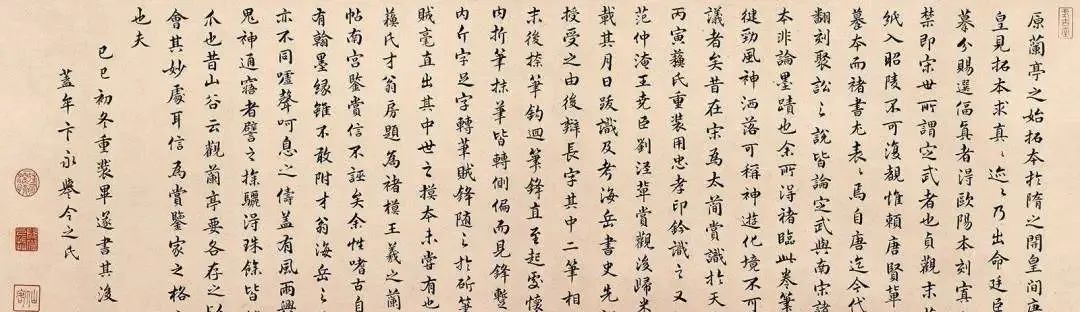 原蘭亭之始拓本於隋之開皇間唐
皇見拓本求真〻迹〻乃出命廷臣
摹分賜選逼真者得歐陽本刻寘
禁即宋世所謂定武者也貞觀末繭
紙入昭陵不可復覩惟賴唐賢輩
摹本而褚書尤表〻焉自唐迄今代
翻刻聚訟〻說皆論定武與南宋諸
本非論墨蹟也余所得褚臨此卷筆
徤勁風神洒落可稱神遊化境不可
議者矣昔在宋為太簡賞識於天
丙寅蘓氏重裝用忠孝印鈐識之又
范仲淹王堯臣劉涇草賞觀後歸米
載其月日跋識及考海岳書史先
授受之由後辯長字其中二筆相
末後捺筆鈎迴筆鋒直至起處懷
內折筆抹筆皆轉側偏而見鋒蹔
內斤字足字轉筆賊鋒隨之於斫筆
賊毫直出其中世之摸本未嘗有也
蘓氏才翁房題為褚模王羲之蘭
帖南宮鑒賞信不誣矣余性嗜古自
有翰墨緣雖不敢附才翁海岳之
亦不同噓聲呵息之儔蓋有風雨興
鬼神通寤者譬之探驪得珠餘皆
爪也昔山谷云觀蘭亭要各存之以
會其妙處耳信為賞鑒家之格
也夫
己巳初冬重裝畢遂書其後
蓋牟卞永譽令之氏